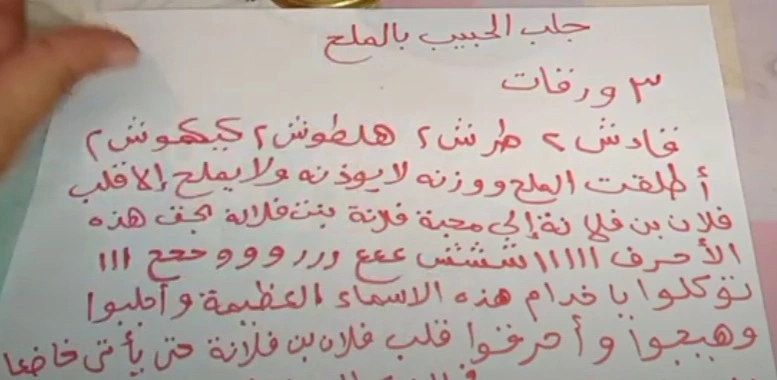 جلب الحبيب بالملح
٣ ورقات
فادش ٢ طرش ٢ هلطوش ٢ كيهوش ٢
أطلقت الملح ووزنه لا يوذنه ولا يملح إلا قلب
فلان بن فلانة إلى محبة فلانة بنت فلانة بحق هذه
الأحرف ااااا شششش ععع ررر ووو ححح ااا
توكلوا يا خدام هذه الاسماء العظيمة وأجلبوا
وهيجوا وأحرقوا قلب فلان بن فلانة حتى يأتي خاضعا